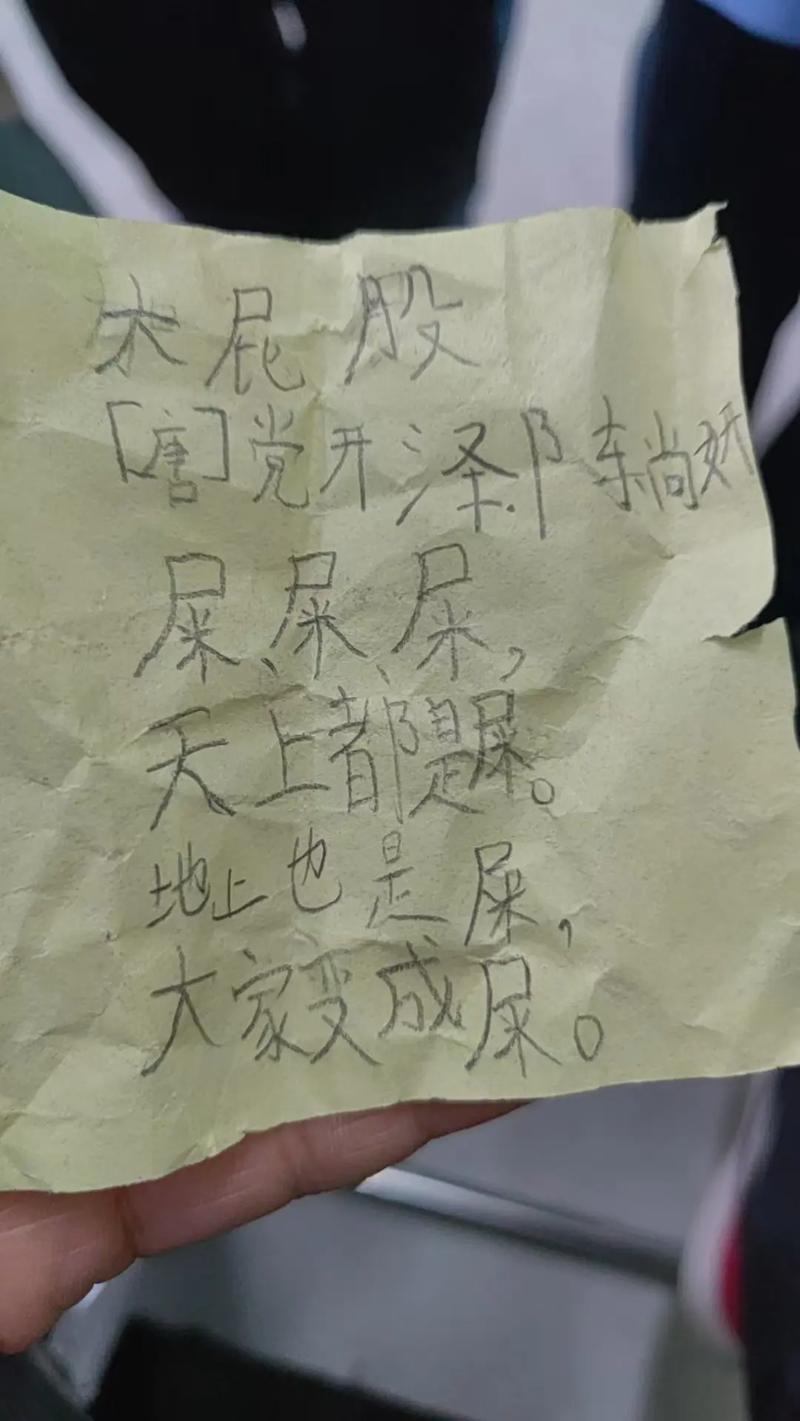 大屁股
[唐]党开泽 陈尚娇
屎、屎、屎,
天上都是屎。
地上也是屎,
大家变成屎。